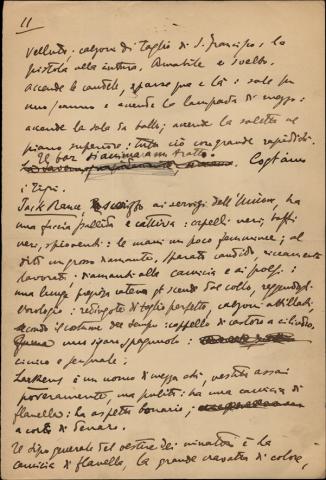 11
velluto, calzoni di taglio di S. Francisco, la
pistola alla cintura. Amabile e svelto.
accende le candele, sparse qua e là: sale su
una scanno e accende la lampada di mezzo:
accende la sala da ballo; accende la saletta al
piano superiore: tutto ciò con grande rapidità.
Il bar si anima a un tratto. Cogliamo
i tipi.
Jack Rance, sceriffo ai servizi dell'Union, ha
una faccia pallida e cattiva: capelli neri; baffi
neri, spioventi: le mani un poco femminee; al
dito un grosso diamante, sparato candido, riccamente
lavorato: diamanti alla camicia e ai polsi:
una lunga catena gli scende dal collo, reggendo
orologio: redingote di taglio perfetto, calzoni attillati,
secondo il costume del tempo: cappello di castoro a cilindro,
un sigaro spagnuolo:
cinico e sensuale.
Larkens è un uomo di mezza età, vestito assai
poveramente, ma pulito: ha una camicia di
flanella: ha aspetto bonario;
a corto di denaro.
Il tipo generale del vestire dei minatori è la
camicia di flanella, la grande cravatta di colore,